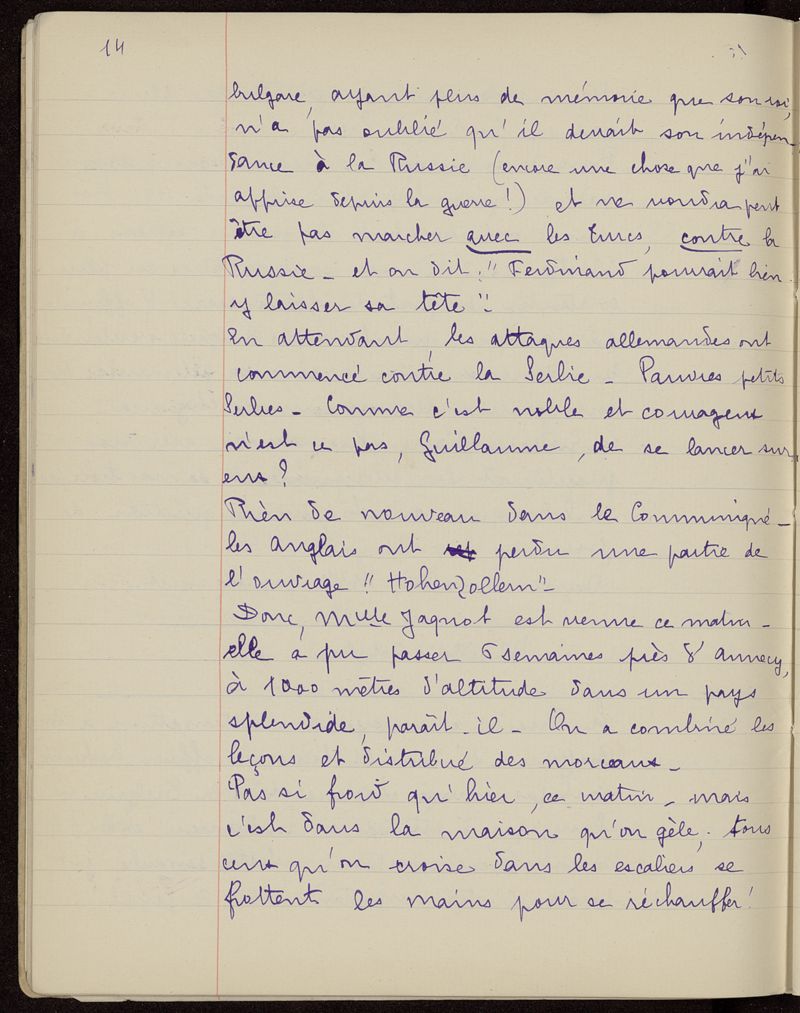 14
bulgare, ayant plus de mémoire que son roi,
n'a pas oublié qu'il devait son indépen-
dance à la Russie (encore une chose que j'ai
apprise depuis la guerre!) et ne voudra peut
être pas marcher avec les Turcs, contre la
Russie _ et on dit : "Ferdinand pourrait bien
y laisser sa tête".
En attendant, les attaques allemandes ont
commencé contre la Serbie _ Pauvres petits
Serbes _ Comme c'est noble et courageux
n'est ce pas, Guillaume, de se lancer sur
eux ?
Rien de nouveau dans le Communiqué _
les Anglais ont perdu une partie de
l'ouvrage "Hohenzollern" _
Donc, Melle Jagnot est venue ce matin _
elle a pu passer 5 semaines près d'Annecy,
à 1000 mètres d'altitude dans un pays
splendide, paraît-il _ On a combiné les
leçons et distribué des morceaux _
Pas si froid qu'hier, ce matin _ mais
c'est dans la maison qu'on gèle. Tous
ceux qu'on croise dans les escaliers se
frottent les mains pour se réchauffer!